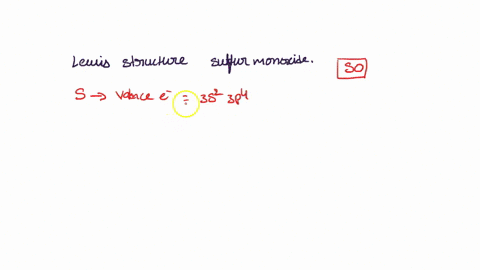 Lewis structure sulfur monoxide. SO
S → Valence e⁻ ÷ 3S² 3p⁴